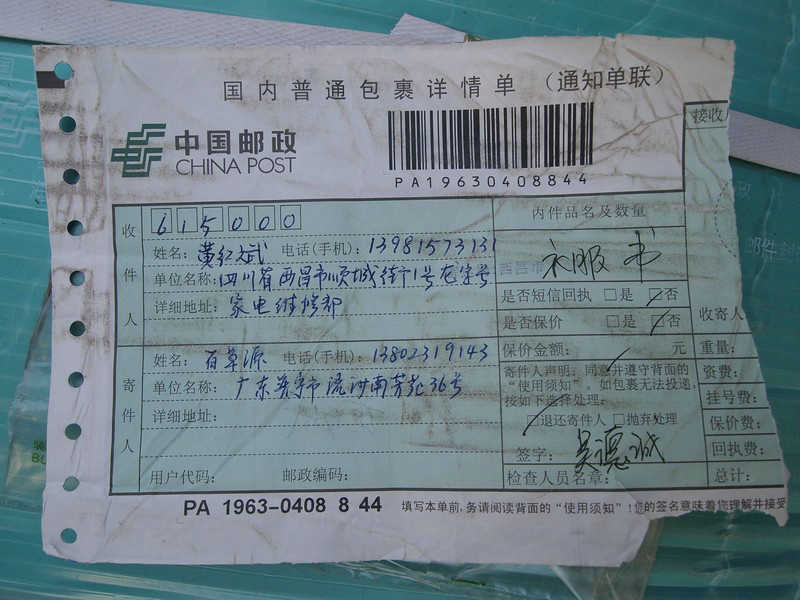 国内普通包裹详情单 (通知单联)
中国邮政
CHINA POST
PA19630408844
接收
收件人
615000
姓名: 黄红斌 电话(手机): 13981573131
单位名称: 四川省西昌市顺城街1号
详细地址: 家电维修部
内件品名及数量
西昌市
衣服 书
是否短信回执 □是 □否
是否保价 □是 □否
收寄人
寄件人
姓名: 百草源 电话(手机): 13802319143
单位名称: 广东 市流沙南芳苑36号
详细地址:
用户代码: 邮政编码:
保价金额: 元
寄件人声明: 同意并遵守背面的
“使用须知”。如包裹无法投递,
按如下选择处理:
□退还寄件人 □抛弃处理
签字: 吴德诚
检查人员名章:
重量:
资费:
挂号费:
保价费:
回执费:
总计:
PA 1963-0408 8 44
填写本单前,务请阅读背面的“使用须知”!您的签名意味着您理解并接受